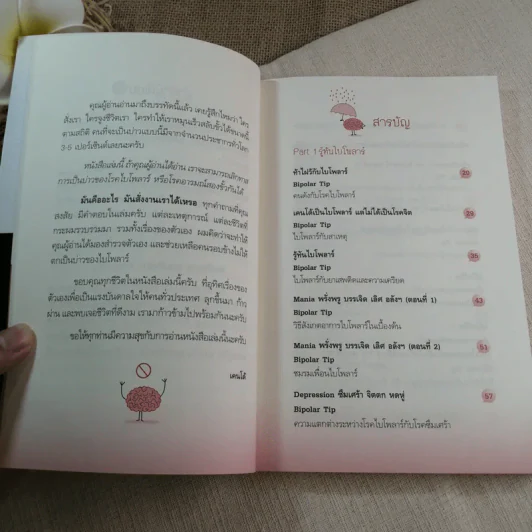 คุณผู้อ่านอ่านมาถึงบรรทัดนี้แล้ว เคยรู้สึกไหมว่า ใคร
สั่งเรา ใครจูงชีวิตเรา ใครทำให้เราหมุนเร็วสลับขั้วได้ขนาดนี้
ตามสถิติ คนที่จะเป็นบ่าวแบบนี้มีจากจำนวนประชากรทั่วโลก
3-5 เปอร์เซ็นต์เลยนะครับ
หนังสือเล่มนี้ ถ้าคุณผู้อ่านได้อ่าน เราจะสามารถเลิกทาส
การเป็นบ่าวของโรคไบโพลาร์ หรือโรคอารมณ์สองขั้วกันได้
มันคืออะไร มันสั่งงานเราได้เหรอ ทุกคำถามที่คุณ
สงสัย มีคำตอบในเล่มครับ แต่ละเหตุการณ์ แต่ละชีวิตที่
กระผมรวบรวมมา รวมทั้งเรื่องของตัวเอง ผมคิดว่าจะทำให้
คุณผู้อ่านได้มองสำรวจตัวเอง และช่วยเหลือคนรอบข้างไม่ให้
ตกเป็นบ่าวของไบโพลาร์
ขอบคุณทุกชีวิตในหนังสือเล่มนี้ครับ ที่อุทิศเรื่องของ
ตัวเองเพื่อเป็นแรงบันดาลใจให้คนทั่วประเทศ ลุกขึ้นมา ก้าว
ผ่าน และพบเจอชีวิตที่ดีงาม เรามาก้าวข้ามไปพร้อมกันนะครับ
ขอให้ทุกท่านมีความสุขกับการอ่านหนังสือเล่มนี้นะครับ
เคนโด้
สารบัญ
Part 1 รู้ทันไบโพลาร์
ทำไมรักไบโพลาร์ 20
Bipolar Tip
คนดังกับโรคไบโพลาร์
เคนโด้เป็นไบโพลาร์ แต่ไม่ได้เป็นโรคจิต 29
Bipolar Tip
ไบโพลาร์กับสาเหตุ
รู้ทันไบโพลาร์ 36
Bipolar Tip
ไบโพลาร์กับยาเสพติดและความเครียด
Mania พรั่งพรู บรรเจิด เลิศ อลังฯ (ตอนที่ 1) 43
Bipolar Tip
วิธีสังเกตอาการไบโพลาร์ในเบื้องต้น
Mania พรั่งพรู บรรเจิด เลิศ อลังฯ (ตอนที่ 2) 51
Bipolar Tip
ชมรมเพื่อนไบโพลาร์
Depression ซึมเศร้า จิตตก หดหู่ 57
Bipolar Tip
ความแตกต่างระหว่างโรคไบโพลาร์กับโรคซึมเศร้า